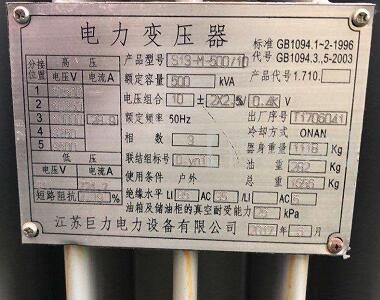 电力变压器
标准 GB1094.1~2-1996
代号 GB1094.3.5-2003
产品型号 S13-M-500/10
产品代号 1.710.
额定容量 500 kVA
电压组合 10 ± 2X2.5% 0.4KV
额定频率 50Hz
出厂序号
相数 3
冷却方式 ONAN
联结组标号 D.yn11
器身重量 1118 Kg
使用条件 户外
油重 262 Kg
总重 Kg
绝缘水平 LI AC 35 /LI AC 5
油箱及储油柜的真空耐受能力 kPa
分接位置 高压
电压V 电流A
1
2
3 28.9
4
5
低压
电压V 电流A
短路阻抗 %
江苏巨力电力设备有限公司
2017 年 月